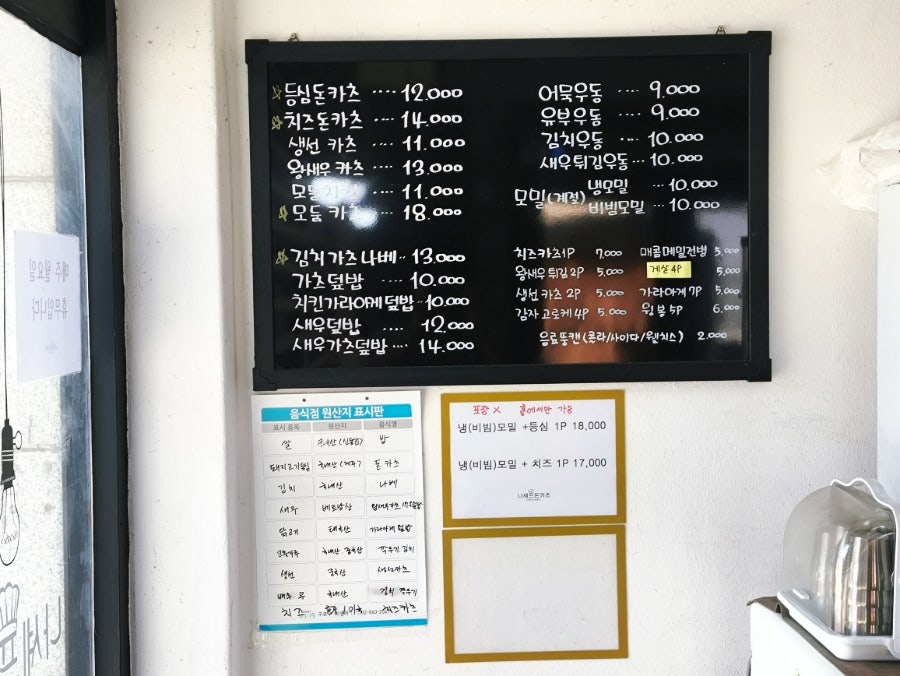 등심돈카츠 ···· 12.000
치즈돈카츠 ···· 14.000
생선 카츠 ···· 11.000
왕새우 카츠 ···· 13.000
11.000
모듬 카츠 ···· 18.000
김치가츠나베·· 13.000
가츠덮밥 ···· 10.000
치킨가라아게덮밥··10.000
새우덮밥 ···· 12.000
새우가츠덮밥···· 14.000
어묵우동 ···· 9.000
유부우동 ···· 9.000
김치우동 ···· 10.000
새우튀김우동·· 10.000
모밀(계절) 냉모밀 ··· 10.000
비빔모밀 ··· 10.000
치즈카츠1P 7.000
왕새우튀김2P 5.000
생선카츠 2P 5.000
감자고로케4P 5.000
매콤메밀전병 5.000
게살4P 5.000
가라아게7P 5.000
윙봉5P 6.000
음료뚱캔(콜라/사이다/웰치스) 2.000
매주 월요일
휴무입니다
음식점 원산지 표시판
표시 품목 원산지 음식명
쌀 밥
돈카츠
김치 국내산 나베
새우 베트남산
닭고기 태국산 가라아게 덮밥
국내산 중국산 깍두기 김치
생선 중국산 생선카츠
배추 무 국내산 김치 깍두기
치즈 치즈카츠
포장 X 홀에서만 가능
냉(비빔)모밀 +등심 1P 18,000
냉(비빔)모밀 + 치즈 1P 17,000
니세프돈카츠